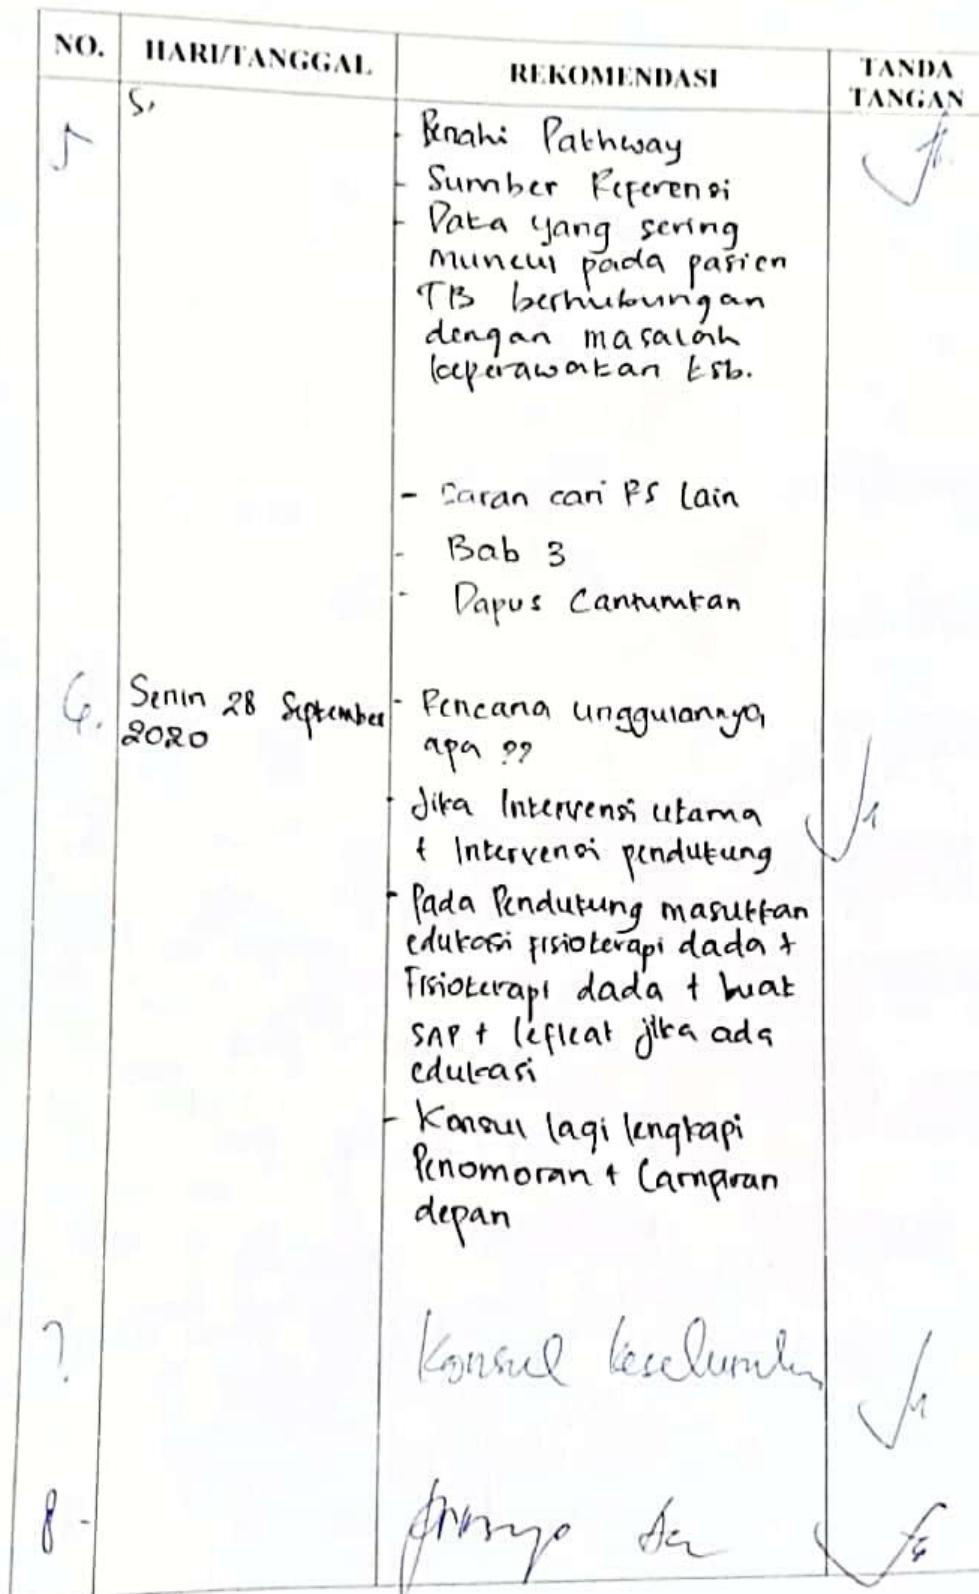 NO. HARI/TANGGAL REKOMENDASI TANDA TANGAN
5 S,
- Benahi Pathway
- Sumber Referensi
- Data yang sering
muncul pada pasien
TB berhubungan
dengan masalah
keperawatan tsb.
- Saran cari RS lain
- Bab 3
- Dapus Cantumkan
6. Senin 28 September
2020
- Rencana unggulannya
apa ??
- Jika Intervensi utama
+ Intervensi pendukung
- Pada Pendukung masukkan
edukasi fisioterapi dada +
Fisioterapi dada + buat
SAP + lefleat jika ada
edukasi
- Konsul lagi lengkapi
Penomoran + Lampiran
depan
7. Konsul keseluruhan
8 -